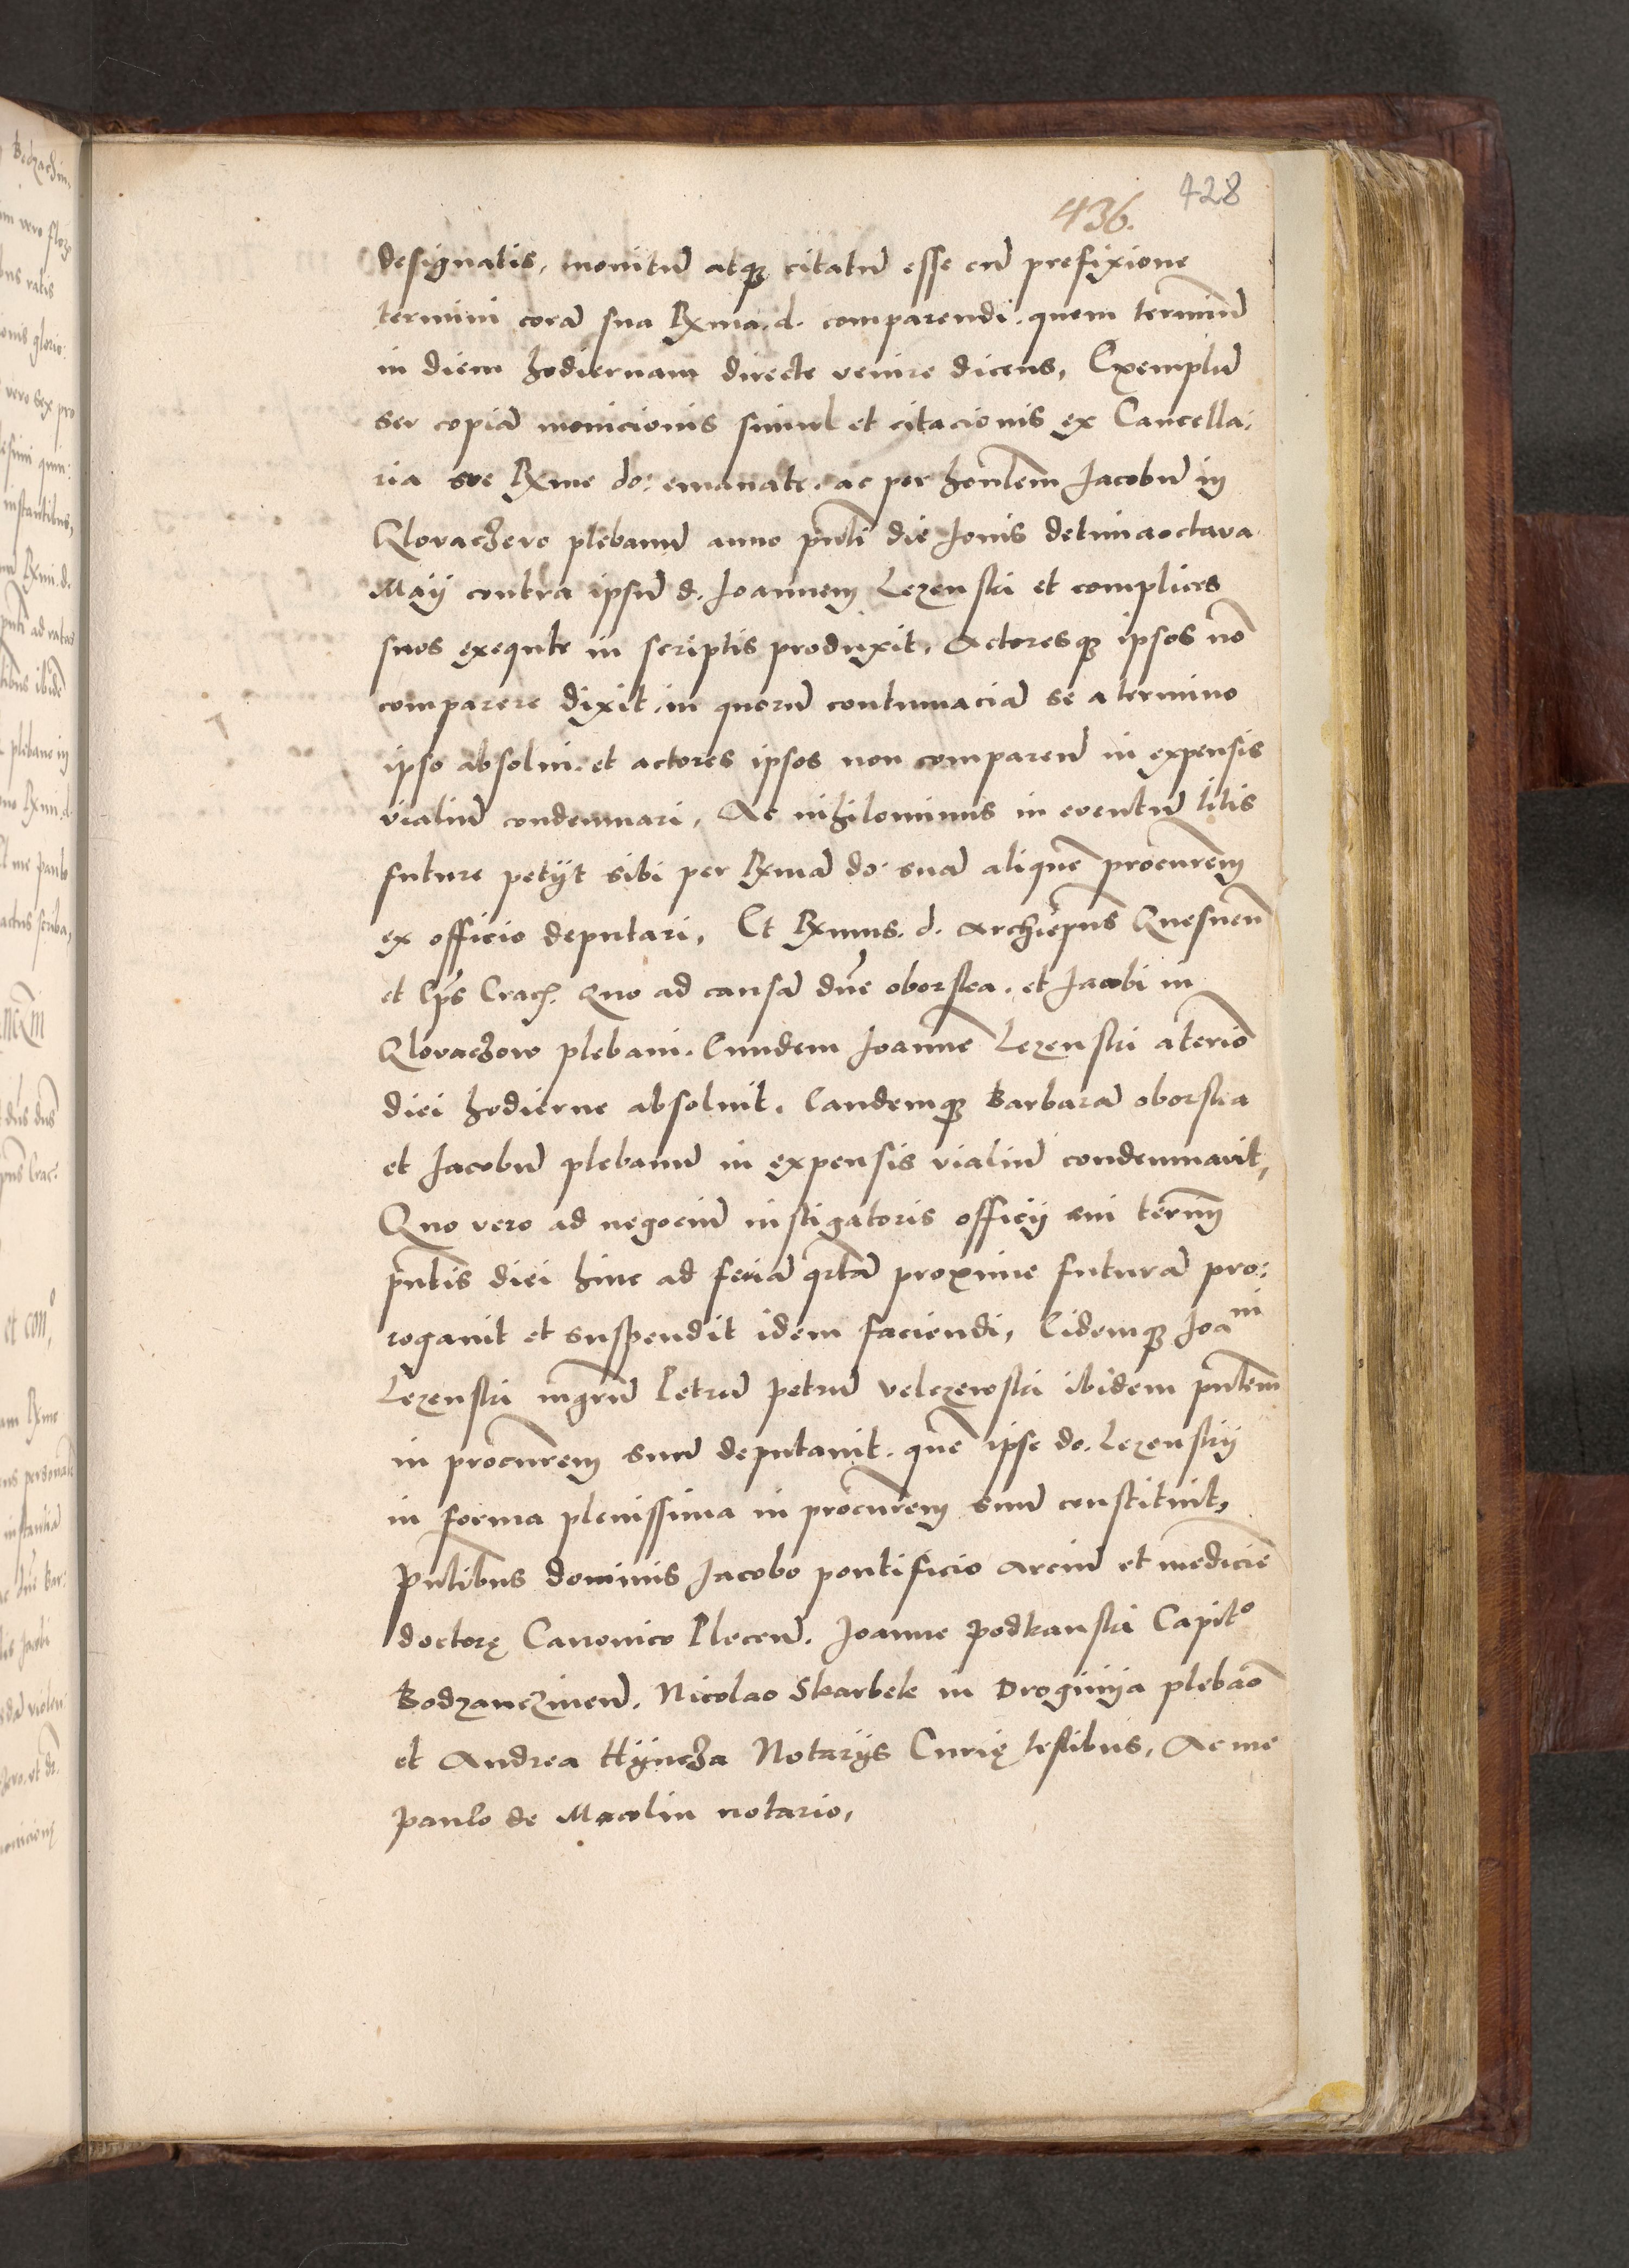 428
436.
designatis, monitū atqꝫ citatū esse cū prefixione
termini corā sua Rxma. d. comparendi. quem terminū
in diem hodiernam directe venire dicens, Exemplū
seu copiā monicionis simul et citacionis ex Cancella:
ria sue Rxme do: emanate. ac per honlem Jacobū in
Glovaczevo plebanū anno pnti die Jovis decimaoctava
Maij contra ipsū d. Joannem Lezenski et complices
suos exequte in scriptis produxit, Actoresqꝫ ipsos nō
comparere dixit, in quorū contumaciā se a termino
ipso absolvi. et actores ipsos non comparen̄ in expensis
vialiū condemnari, Ac nihilominus in eventū litis
future petijt sibi per Rxmā do: suā aliquē procurem
ex officio deputari, Et Rxmus. d. Archiepus Gnesnen̄
et Eps Crac̄. Quo ad causā dne oborska. et Jacobi in
Glovaczow plebani. Eundem Joannē Lezenski a termio
diei hodierne absolvit. Eandemqꝫ Barbarā oborska
et Jacobū plebanū in expensis vialiū condemnavit,
Quo vero ad negociū instigatoris officij sui termin
pntis diei hinc ad feriā qrtā proxime futurā pro:
rogavit et suspendit idem faciendi, Eidemqꝫ Joāni
Lezenski mgrū Petrū Petrū velezewski ibidem pntem
in procurem suū deputavit. quē ipse do. Lezenskij
in forma plenissima in procurem suū constituit,
Pntibus dominis Jacobo pontificio Arciū et medicīe
doctorę Canonico Plocen̄. Joanne Podkanski Capitᵒ
Bodzanczinen̄. Nicolao Skarbek in Droginija plebaō
et Andrea Hÿncza Notarijs Curię testibus, Ac me
Paulo de Macolin notario,